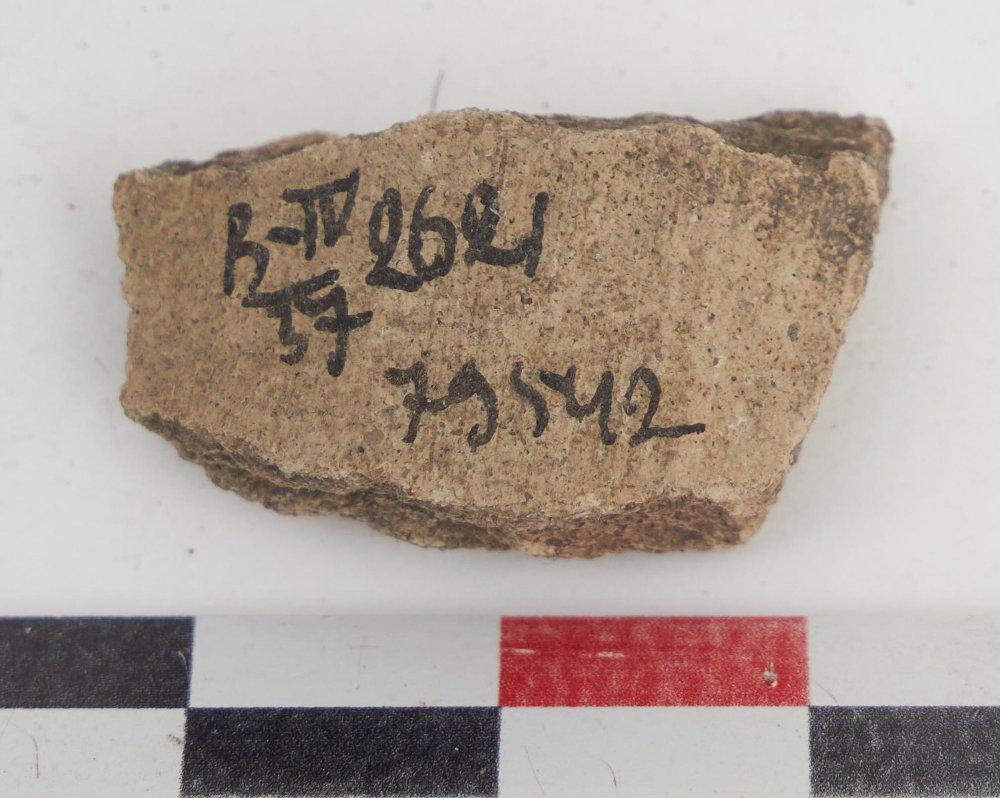 R-IV 2621
57
79542